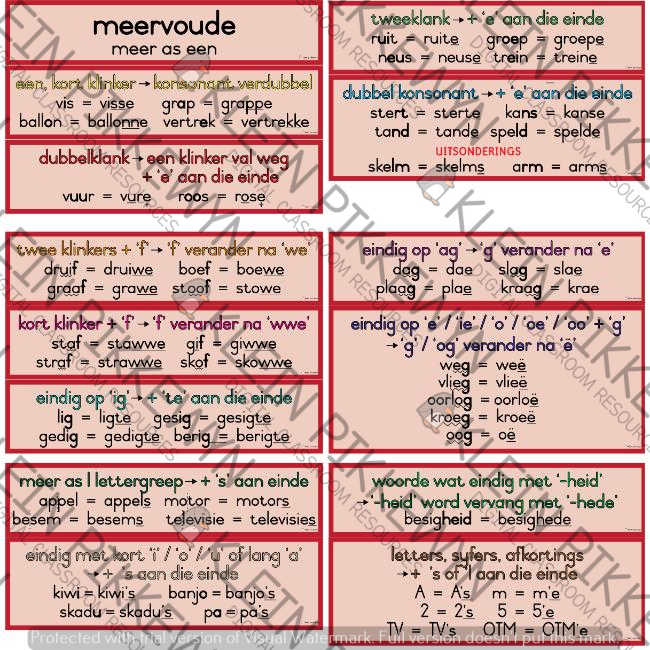 meervoude
meer as een
een, kort klinker → konsonant verdubbel
vis = visse grap = grappe
ballon = ballonne vertrek = vertrekke
dubbelklank → een klinker val weg
+ 'e' aan die einde
vuur = vure roos = rose
tweeklank → + 'e' aan die einde
ruit = ruite groep = groepe
neus = neuse trein = treine
dubbel konsonant → + 'e' aan die einde
stert = sterte kans = kanse
tand = tande speld = spelde
UITSONDERINGS
skelm = skelms arm = arms
twee klinkers + 'f' → 'f' verander na 'we'
druif = druiwe boef = boewe
graaf = grawe stoof = stowe
kort klinker + 'f' → 'f' verander na 'wwe'
staf = stawwe gif = giwwe
straf = strawwe skof = skowwe
eindig op 'ig' → + 'te' aan die einde
lig = ligte gesig = gesigte
gedig = gedigte berig = berigte
eindig op 'ag' → 'g' verander na 'e'
dag = dae slag = slae
plaag = plae kraag = krae
eindig op 'e' / 'ie' / 'o' / 'oe' / 'oo' + 'g'
→ 'g' / 'og' verander na 'ë'
weg = weë
vlieg = vlieë
oorlog = oorloë
kroeg = kroeë
oog = oë
meer as 1 lettergreep → + 's' aan einde
appel = appels motor = motors
besem = besems televisie = televisies
eindig met kort 'i' / 'o' / 'u' of lang 'a'
→ + 's aan die einde
kiwi = kiwi's banjo = banjo's
skadu = skadu's pa = pa's
woorde wat eindig met '-heid'
→ '-heid' word vervang met '-hede'
besigheid = besighede
letters, syfers, afkortings
→ + 's of 'l aan die einde
A = A's m = m'e
2 = 2's 5 = 5'e
TV = TV's OTM = OTM'e
KLEIN PIKKEWYN
DIGITAL CLASSROOM RESOURCES
Protected with trial version of Visual Watermark. Full version doesn't put this mark.